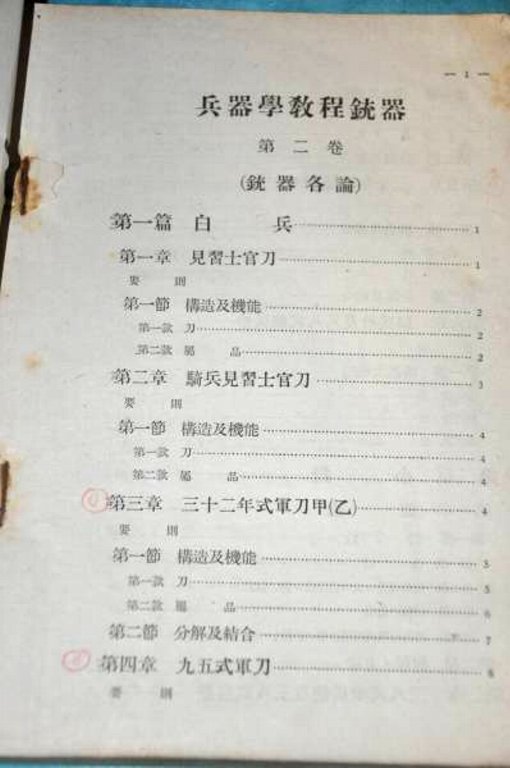 — 1 —
兵器學教程銃器
第二卷
(銃器各論)
第一篇 白兵……………1
第一章 見習士官刀……………1
要則
第一節 構造及機能……………2
第一款 刀……………2
第二款 屬品……………2
第二章 騎兵見習士官刀……………3
要則
第一節 構造及機能……………4
第一款 刀……………4
第二款 屬品……………4
第三章 三十二年式軍刀甲(乙)……………4
要則
第一節 構造及機能……………5
第一款 刀……………5
第二款 屬品……………6
第二節 分解及結合……………7
第四章 九五式軍刀……………8
要則